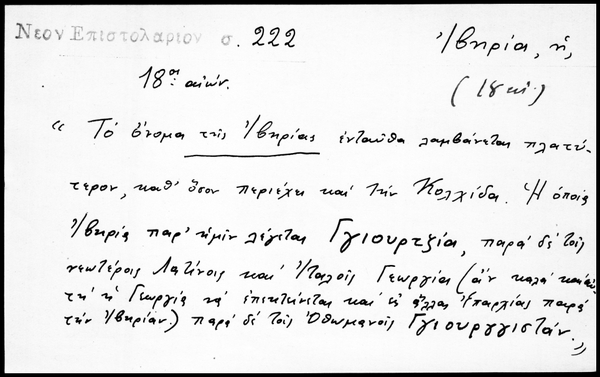 Νεον Επιστολαριον σ. 222
Ἰβηρία, ἡ,
18ος αἰών.
(18 αἰ.)
« Τό ὄνομα τῆς Ἰβηρίας ἐνταῦθα λαμβάνεται πλατύ-
τερον, καθ' ὅσον περιέχει καί τήν Κολχίδα. Ἡ ὁποία
Ἰβηρία παρ' ἡμῖν λέγεται Γγιουρτζία, παρά δέ τοῖς
νεωτέροις Λατίνοις καί Ἰταλοῖς Γεωργία (ἄν καλά καί αὐ-
τή ἡ Γεωργία νά ἐπεκτείνεται καί εἰς ἄλλας Ἐπαρχίας παρά
τήν Ἰβηρίαν.) παρά δέ τοῖς Ὀθωμανοῖς Γγιουργγιστάν. »